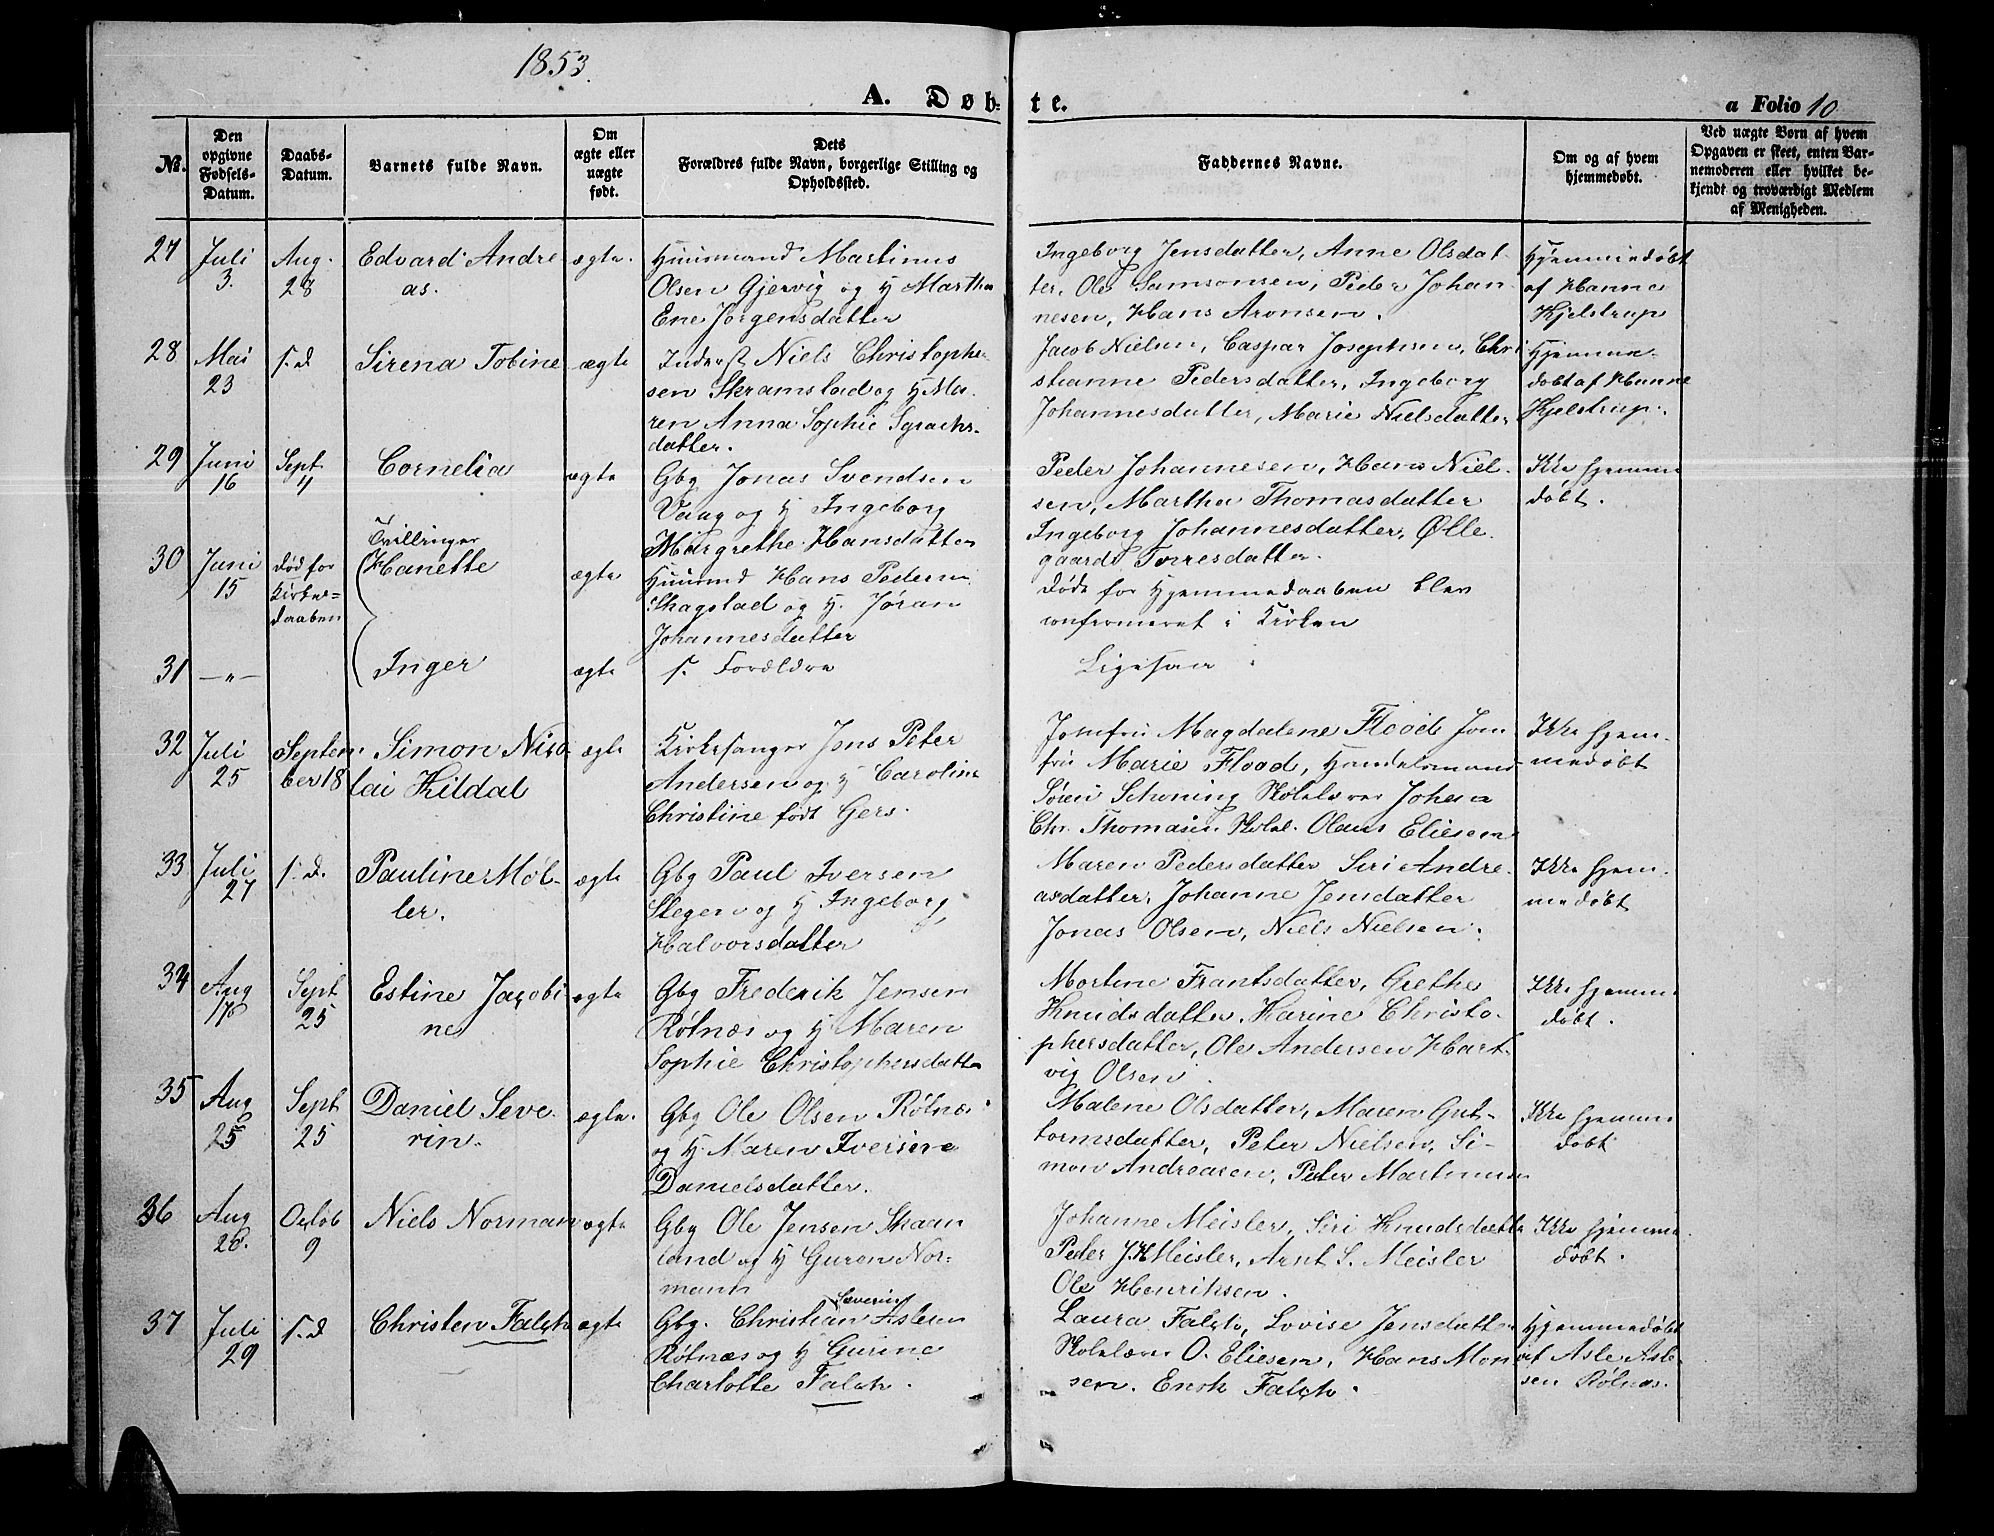 1853.
A. Døbte.
a Folio 10
№.
Den opgivne Fødsels-Datum.
Daabs-Datum.
Barnets fulde Navn.
Om ægte eller uægte født.
Dets Forældres fulde Navn, borgerlige Stilling og Opholdssted.
Faddernes Navne.
Om og af hvem hjemmedøbt.
Ved uægte Børn af hvem Opgaven er skeet, enten Barnemoderen eller hvilket bekjendt og troværdigt Medlem af Menigheden.
27 Juli 3. Aug. 28 Edvard Andre
as.
ægte.
Huusmand Martinus
Olsen Gjervig og H Martha
Ene Jørgensdatter
Ingeborg Jensdatter, Anne Olsdat-
ter, Ole Samsonsen, Peder Johan-
nesen, Hans Aronsen.
Hjemmedøbt
af Hanna
Kjelstrup
28 Mai 23 s.d Sirena Tobine ægte
Inderst Niels Christophe-
sen Skramstad og H Ma-
ren Anna Sophie
datter.
Jacob Nielsen, Caspar Josephsen, Chri
stianne Pedersdatter, Ingeborg
Johannesdatter, Marie Nielsdatter
Hjemme-
døbt af Hanne
Kjelstrup.
29 Juni 16 Sept 4 Cornelia ægte
Gbg Jonas Svendsen
Vaag og H Ingeborg
Margrethe Hansdatter
Peder Johannesen, Hans Niel-
sen, Martha Thomasdatter
Ingeborg Johannesdatter, Ølle
gaard Torresdatter.
Ikke hjemme
døbt.
30 Juni 15 død før
Kirke-
daaben
Tvillinger
Hanette ægte
Huusmd Hans Pedersen
Skagstad og H. Jøran
Johannesdatter
Døde før Hjemmedaaben blev
confirmeret i Kirken
31 —"— Inger ægte
s. Forældre
Ligesaa
32 Juli 25 Septem
ber 18 Simon Nico
lai Kildal ægte
Kirkesanger Jens Peter
Andersen og H Caroline
Christine født Gers.
Jomfru Magdalene Flood Jom
fru Marie Flood, Handelsmand
Søren Schoning Skolelærer Johan
Chr. Thomasen Skolel. Olaus Eliesen
Ikke hjem-
medøbt
33 Juli 27 s.d. Pauline Møl-
ler. ægte
Gbg Paul Iversen
Stegen og H Ingeborg
Halvorsdatter
Maren Pedersdatter Siri Andre-
asdatter, Johanne Jensdatter
Jonas Olsen, Niels Nielsen.
Ikke hjem-
medøbt
34 Aug 17 Sept 25 Estine Jacobi
ne ægte
Gbg Frederik Jensen
Røtnæs og H Maren
Sophie Christophersdatter
Martine Frantsdatter, Grethe
Knudsdatter, Karine Christo-
phersdatter, Ole Andersen Hart-
vig Olsen.
Ikke hjemme
døbt.
35 Aug 25 Sept 25 Daniel Seve-
rin. ægte.
Gbg Ole Olsen Røtnæs
og H. Maren Iversine
Danielsdatter.
Malene Olsdatter, Maren Gut-
tormsdatter, Peter Nielsen, Si-
mon Andreasen, Peter Martinusen
Ikke hjemme
døbt
36 Aug 20. Octob 9 Niels Norman ægte
Gbg Ole Jensen Skaan
land og H Guren Nor-
mann
Johanne Meisler, Siri Knudsdatter
Peder J.H Meisler, Arnt S. Meisler
Ole Henriksen.
Ikke hjemme
døbt.
37 Juli 29 s.d Christen Falch ægte
Severin
Gbg. Christian Aslesen
Røtnæs og H Gurine
Charlotte Falch.
Laura Falch, Lovise Jensdatter
Skolelærer O. Eliesen, Hans Mon
sen. Enok Falch.
Hjemmedøbt
af Asle Asle-
sen Røtnæs.